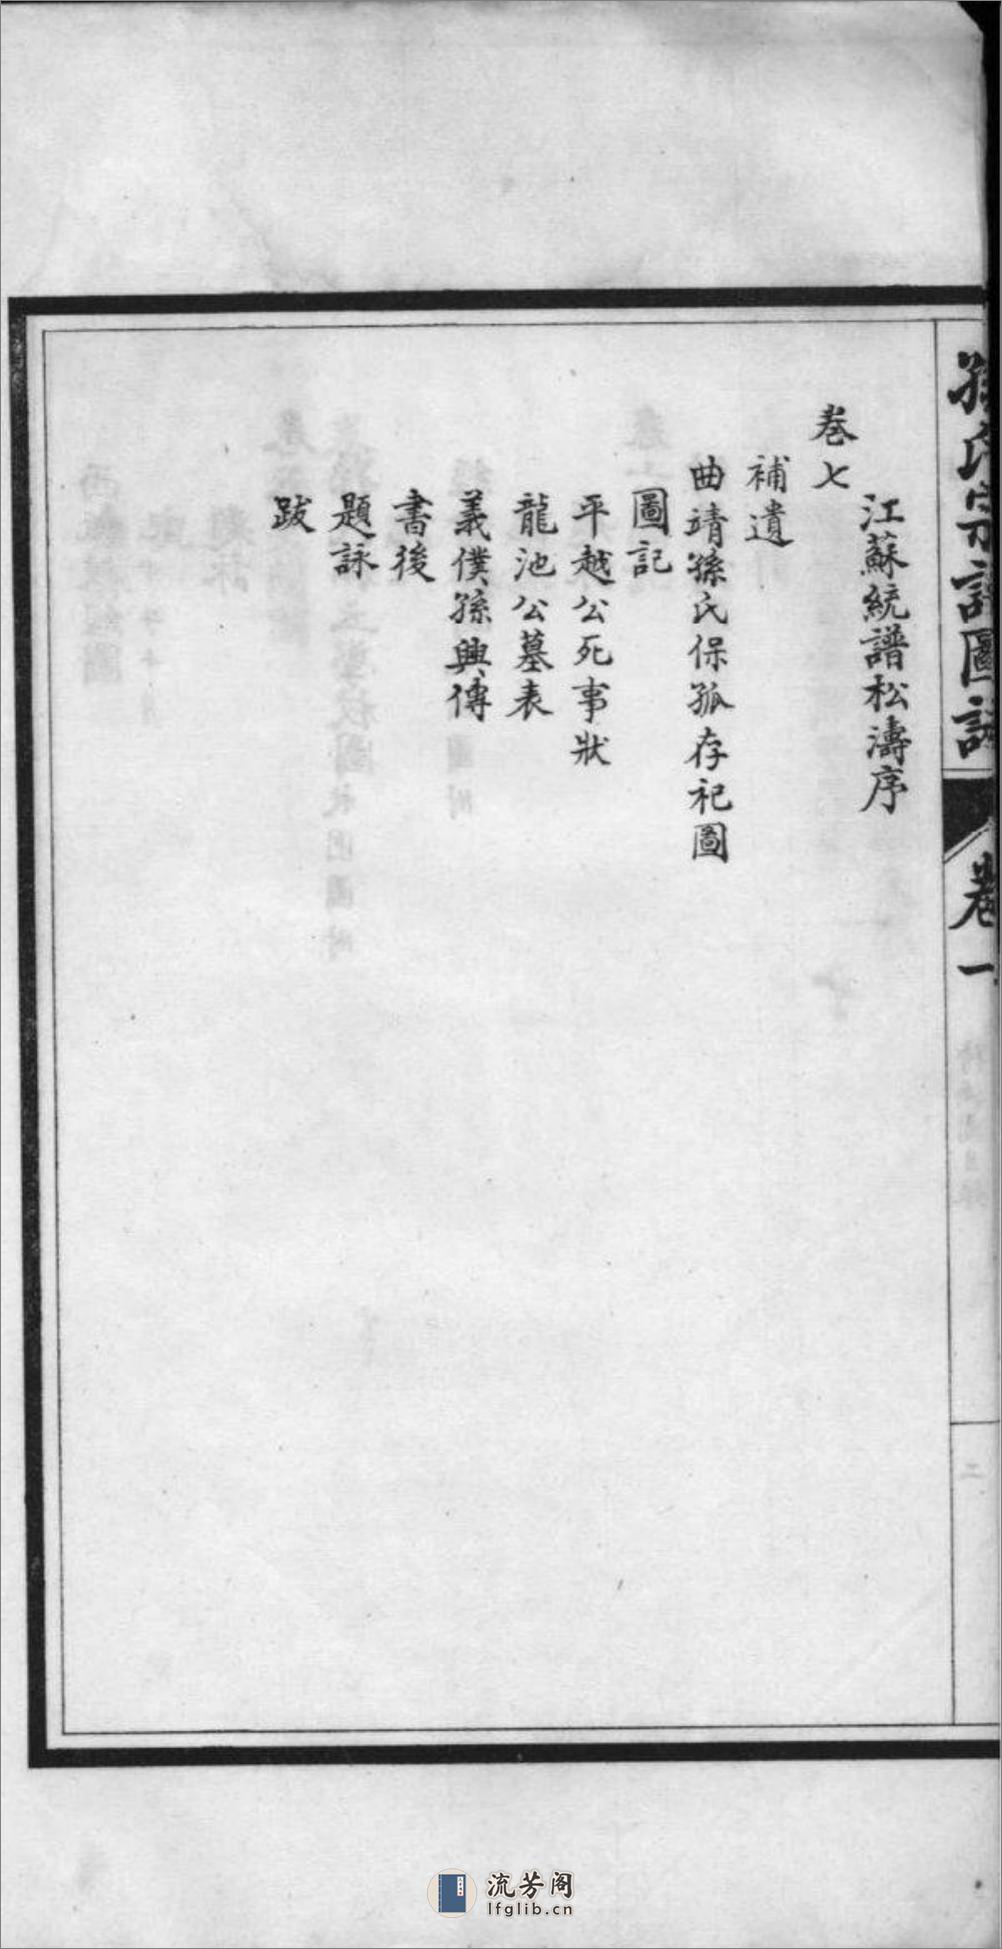 孫氏宗譜圖誌
卷一
江蘇統譜松濤序
卷七
補遺
曲靖孫氏保孤存祀圖
圖記
平越公死事狀
龍池公墓表
義僕孫興傳
書後
題詠
跋
流芳阁
lfglib.cn